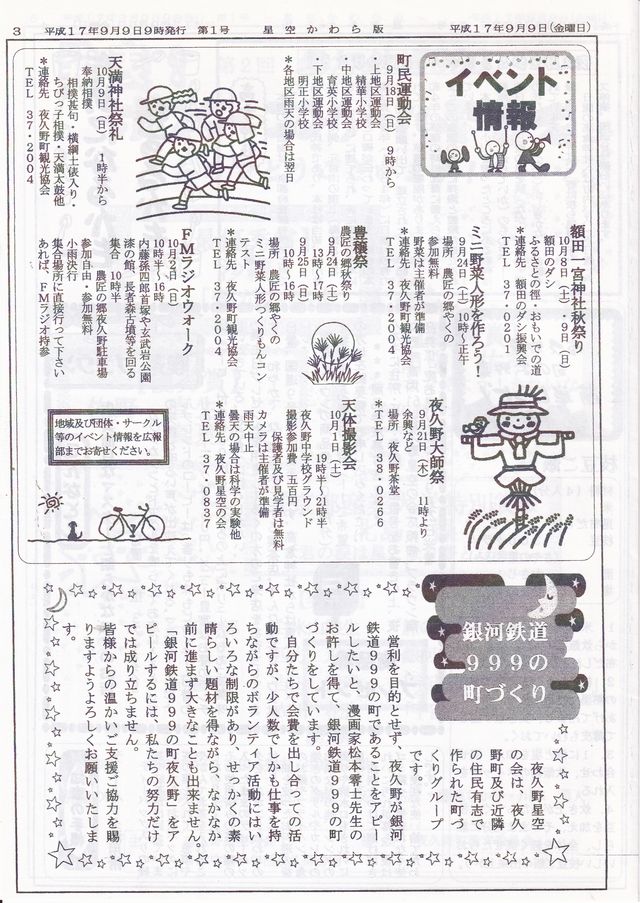 3
平成17年9月9日9時発行　第1号　星空かわら版　平成17年9月9日(金曜日)
イベント
情報
町民運動会
9月18日（日）　9時から
・上地区運動会
精華小学校
・中地区運動会
育英小学校
・下地区運動会
明正小学校
*各地区雨天の場合は翌日
天満神社祭礼
10月9日（日）　1時半から
奉納相撲
相撲甚句・横綱土俵入り・
ちびっ子相撲・天満太鼓他
*連絡先　夜久野町観光協会
TEL　37・2004
額田一宮神社秋祭り
10月8日（土）・9日（日）
額田のダシ
ふるさとの徑・おもいでの道
*連絡先　額田のダシ振興会
TEL　37・0201
ミニ野菜人形を作ろう！
9月24日（土）10時～正午
場所　農匠の郷やくの
参加無料
野菜は主催者が準備
*連絡先　夜久野町観光協会
TEL　37・2004
豊穫祭
農匠の郷秋祭り
9月24日（土）
13時～17時
9月25日（日）
10時～16時
場所　農匠の郷やくの
ミニ野菜人形つくりもんコン
テスト
*連絡先　夜久野町観光協会
TEL　37・2004
FMラジオウォーク
10月2日（日）
10時半～16時
内藤孫四郎首塚や玄武岩公園
漆の館、長者森古墳等を回る
集合　10時半
農匠の郷夜久野駐車場
参加自由・参加無料
小雨決行
集合場所に直接行って下さい
あれば、FMラジオ持参
夜久野大師祭
9月21日（水）　11時より
余興など
場所　夜久野茶堂
*TEL　38・0266
天体撮影会
10月1日（土）
19時半～21時半
夜久野中学校グラウンド
撮影参加費　五百円
保護者及び見学者は無料
カメラは主催者が準備
雨天中止
曇天の場合は科学の実験他
*連絡先　夜久野星空の会
TEL　37・0837
地域及び団体・サークル
等のイベント情報を広報
部までお寄せください。
銀河鉄道
999の
町づくり
夜久野星空
の会は、夜久
野町及び近隣
の住民有志で
作られた町づ
くりグループ
です。
営利を目的とせず、夜久野が銀河
鉄道999の町であることをアピー
ルしたいと、漫画家松本零士先生の
お許しを得て、銀河鉄道999の町
づくりをしています。
自分たちで会費を出し合っての活
動ですが、少人数でしかも仕事を持
ちながらのボランティア活動にはい
ろいろな制限があり、せっかくの素
晴らしい題材を得ながら、なかなか
前に進まず大きなことも出来ません。
「銀河鉄道999の町夜久野」をア
ピールするには、私たちの努力だけ
では成り立ちません。
皆様からの温かいご支援ご協力を賜
りますようよろしくお願いいたしま
す。